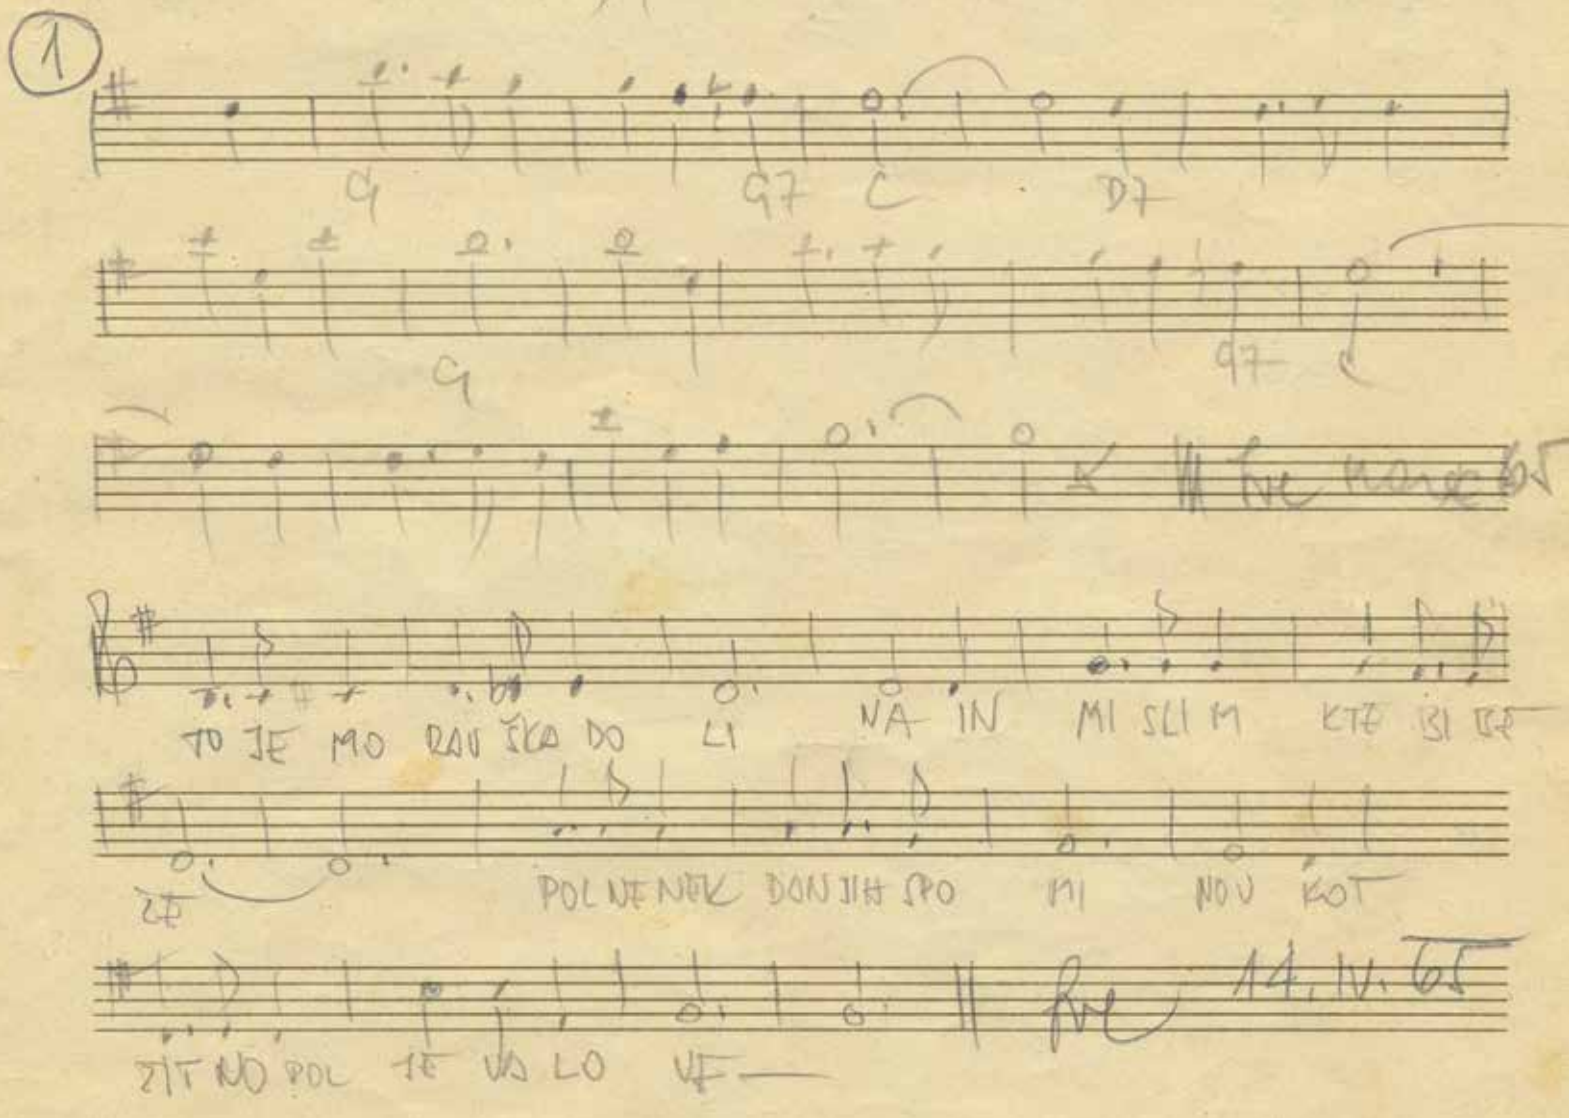 1
G G7 C D7
G G7 C
65
TO JE MO RAV ŠKA DO LI NA IN MI SLI M KJE BI BE
ŽE POL NE NEK DAN JIH SPO MI NOV KOT
ŽIT NO POL JE VA LO VE —
14. IV. 65